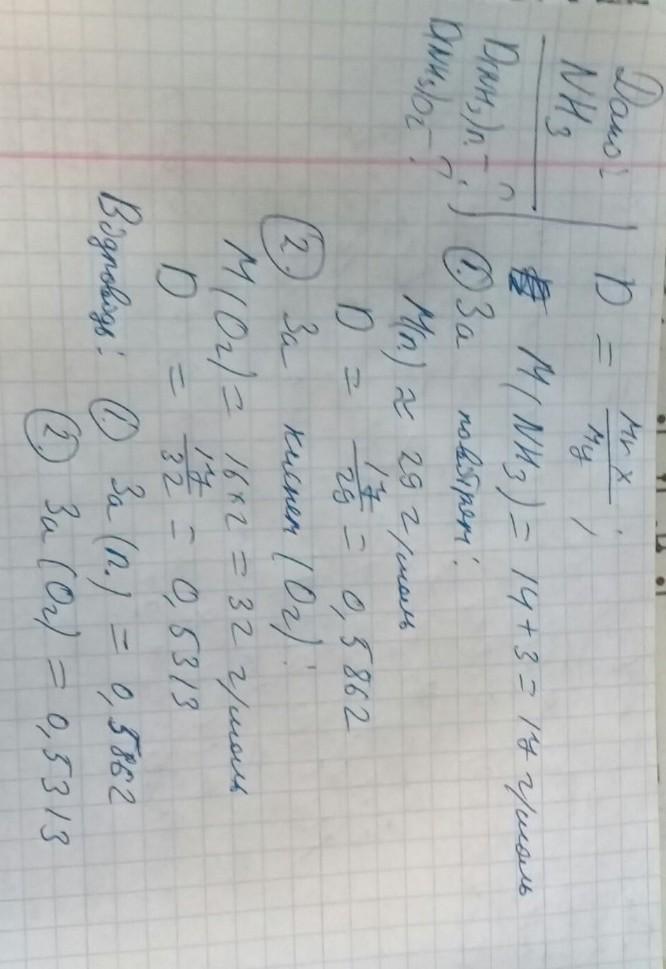 Дано:
NH3
D(NH3)п. - ?
D(NH3)O2 - ?
D = Mx / My ;
M(NH3) = 14 + 3 = 17 г/моль
1. За повітрям:
M(п.) ≈ 29 г/моль
D = 17/29 = 0,5862
2. За киснем (O2):
M(O2) = 16 × 2 = 32 г/моль
D = 17/32 = 0,5313
Відповідь: 1. За (п.) = 0,5862
2. За (O2) = 0,5313